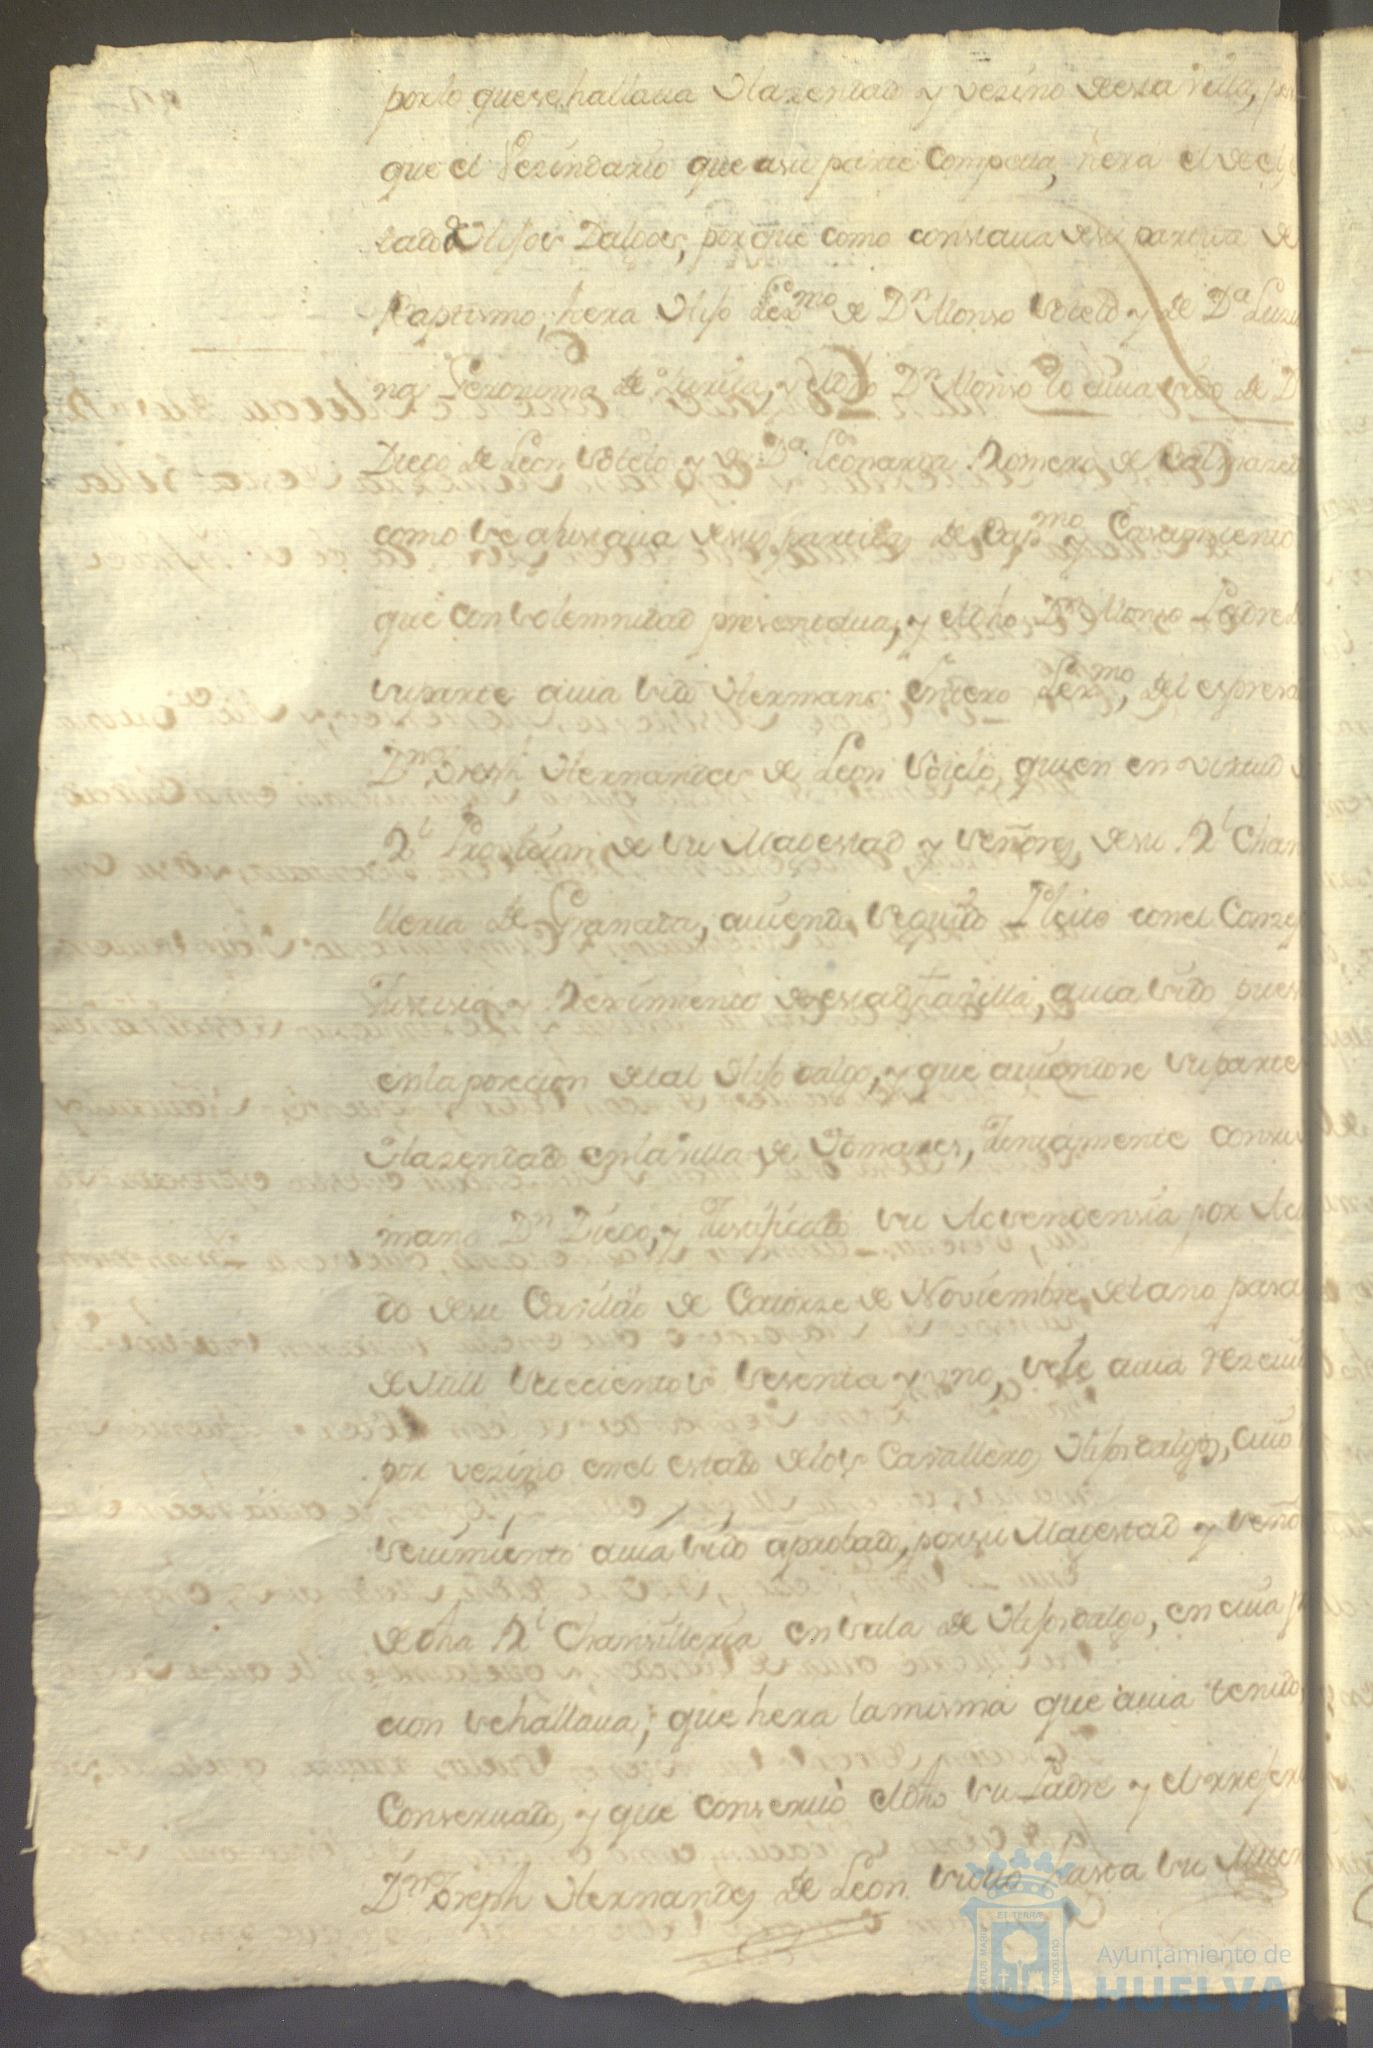 por lo que se hallaua Hazendado y vezino desta villa, por
que el Vezindario que a su parte Competia, hera el de el es
tado de Hijos Dalgos, porque como constaua de su partida de
Baptismo, hera Hijo Lexmo de Dn Alonso Sotelo y de Da
na Geronima de Zurita, y el dho Dn Alonso lo auia sido de Dn
Diego de Leon Sotelo y de Da Leonarda Romero de
como se ajustaua de sus partidas de Bapmo y Casamiento
que con solemnidad presentaua, y el dho Dn Alonso Padre de
su parte auia sido Hermano entero Lexmo, del espresa
Dn Joseph Hernandes de Leon Sotelo, quien en virtud
Rl Prouision de su Magestad y Señores, de su Rl Chan
lleria de Granada, auiendo seguido Pleito con el Conzej
Justisia y Reximiento de esta dha Villa, auia sido pues
en la posecion de tal Hijo dalgo, y que auiendose su parte
Hazendado en la villa de Tomares, Juntamente con su
mano Dn Diego, y Justificado su Asendensia por Acu
do de su Cauildo de Catorze de Noviembre, del ano pasa
de Mill setecientos sesenta y uno, se le auia rezeuid
por vezino en el estado de los Cavalleros Hijosdalgo, cuio
seuimiento auia sido aprobado, por su Magestad y Seño
de dha Rl Chansilleria en sala de Hijosdalgo, en cuia p
cion se hallaua, que hera la misma que auia tenido
Conseruado, y que conseruó el dho su Padre y el rreferi
Dn Joseph Hernandes de Leon hasta su Muer
Ayuntamiento de
HUELVA